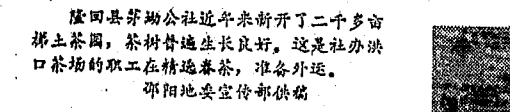 隆回县茅坳公社近年来新开了二千多亩
梯土茶园，茶树普遍生长良好。这是社办洪
口茶场的职工在精选春茶，准备外运。
邵阳地委宣传部供稿